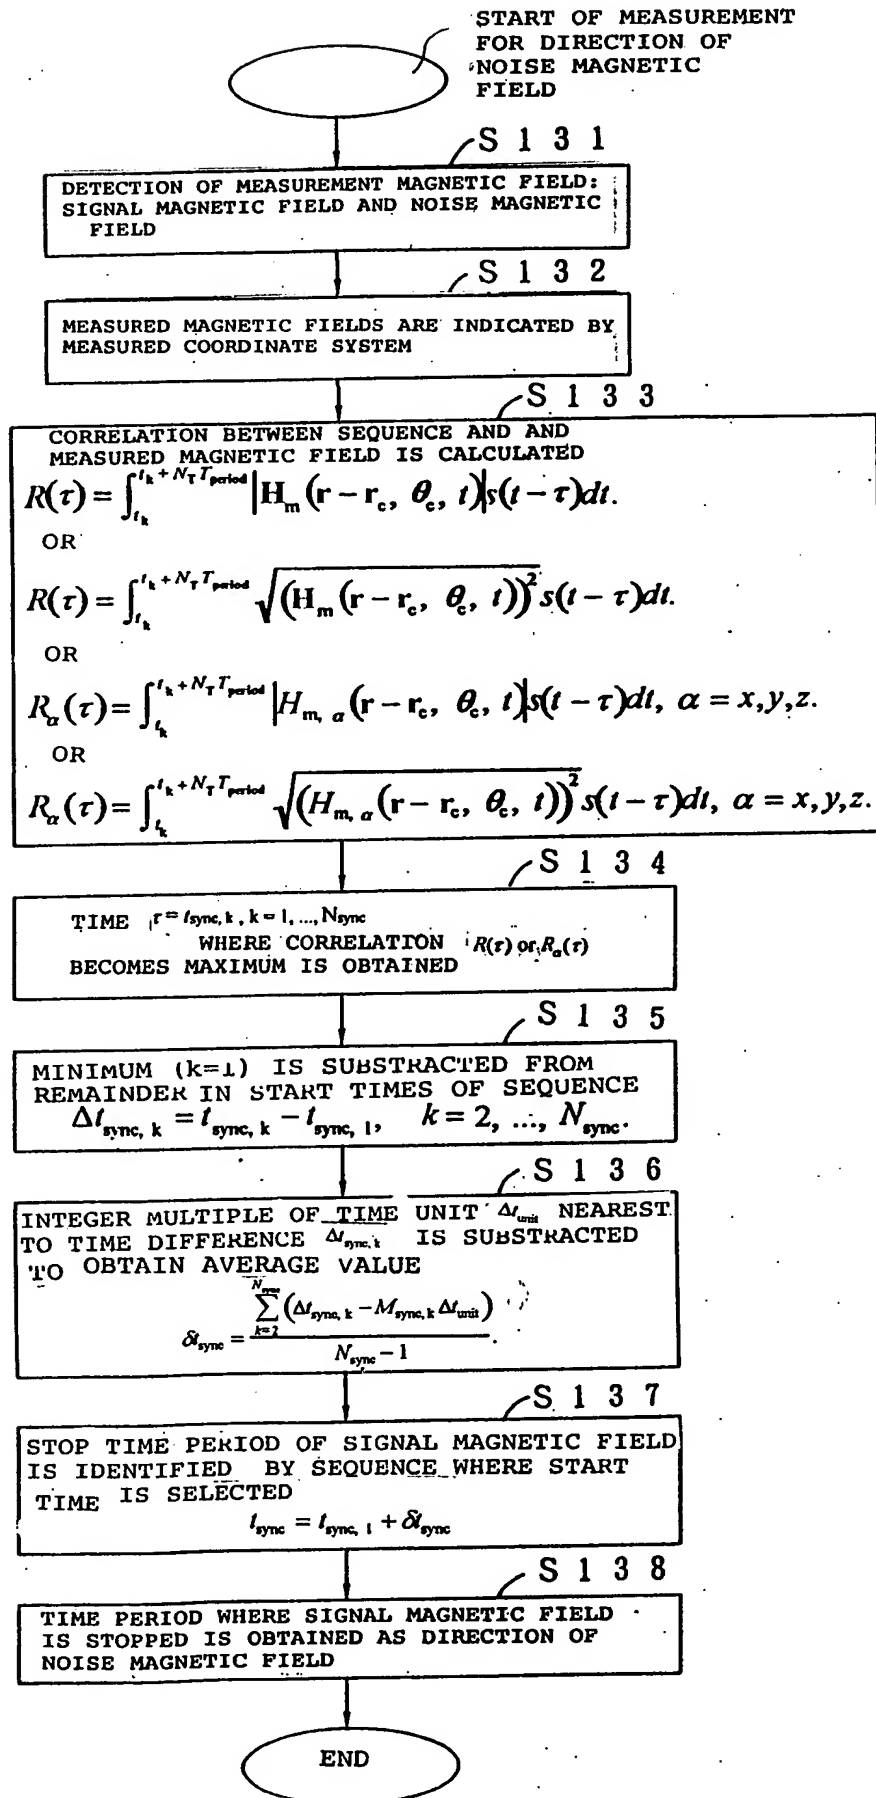 START OF MEASUREMENT
FOR DIRECTION OF
NOISE MAGNETIC
FIELD
S 1 3 1
DETECTION OF MEASUREMENT MAGNETIC FIELD:
SIGNAL MAGNETIC FIELD AND NOISE MAGNETIC
FIELD
S 1 3 2
MEASURED MAGNETIC FIELDS ARE INDICATED BY
MEASURED COORDINATE SYSTEM
S 1 3 3
CORRELATION BETWEEN SEQUENCE AND AND
MEASURED MAGNETIC FIELD IS CALCULATED
R(τ) = ∫_{t_k}^{t_k + N_T T_period} |H_m (r − r_c, θ_c, t)| s(t − τ)dt.
OR
R(τ) = ∫_{t_k}^{t_k + N_T T_period} √((H_m (r − r_c, θ_c, t))²) s(t − τ)dt.
OR
R_α(τ) = ∫_{t_k}^{t_k + N_T T_period} |H_{m, α} (r − r_c, θ_c, t)| s(t − τ)dt, α = x,y,z.
OR
R_α(τ) = ∫_{t_k}^{t_k + N_T T_period} √((H_{m, α} (r − r_c, θ_c, t))²) s(t − τ)dt, α = x,y,z.
S 1 3 4
TIME τ = t_{sync, k}, k = 1, ..., N_sync
WHERE CORRELATION R(τ) or R_α(τ)
BECOMES MAXIMUM IS OBTAINED
S 1 3 5
MINIMUM (k=1) IS SUBSTRACTED FROM
REMAINDER IN START TIMES OF SEQUENCE
Δt_{sync, k} = t_{sync, k} − t_{sync, 1}, k = 2, ..., N_sync.
S 1 3 6
INTEGER MULTIPLE OF TIME UNIT Δt_unit NEAREST
TO TIME DIFFERENCE Δt_{sync, k} IS SUBSTRACTED
TO OBTAIN AVERAGE VALUE
δt_sync = ∑_{k=2}^{N_sync} (Δt_{sync, k} − M_{sync, k} Δt_unit) / (N_sync − 1).
S 1 3 7
STOP TIME PERIOD OF SIGNAL MAGNETIC FIELD
IS IDENTIFIED BY SEQUENCE WHERE START
TIME IS SELECTED
t_sync = t_{sync, 1} + δt_sync
S 1 3 8
TIME PERIOD WHERE SIGNAL MAGNETIC FIELD
IS STOPPED IS OBTAINED AS DIRECTION OF
NOISE MAGNETIC FIELD
END